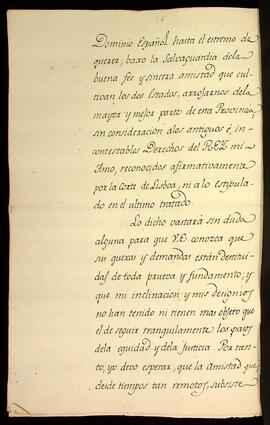 Dominio Español hasta el extremo de
querer, baxo la Salvaguardia dela
buena fee y sincera amistad que cul-
tivan los dos Estados, arrojarnos dela
mayor y mejor parte de esta Provincia,
sin consideracion alos antiguos è, in-
contestables Derechos del REY mi
Amo, reconocidos afirmativamente
por la Corte de Lisboa, ni a lo estipula-
do en el ultimo tratado.
Lo dicho vastará sin duda
alguna para que V.E. conozca que
su quexas y demandas están destitui-
das de toda prueva y fundamento; y
que mi inclinacion y mis designios
no han tenido ni tienen mas objeto que
el de seguir tranquilamente los pasos
dela equidad y dela Justicia. Por tan-
to, yo devo esperar, que la amistad que
desde tiempos tan remotos, subsiste